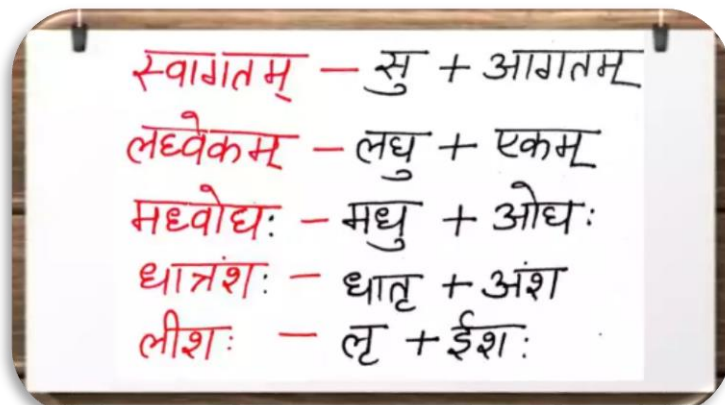 स्वागतम् – सु + आगतम्
लघ्वेकम् – लघु + एकम्
मध्वोघः – मधु + ओघः
धात्रंशः – धातृ + अंश
लीशः – लृ + ईशः